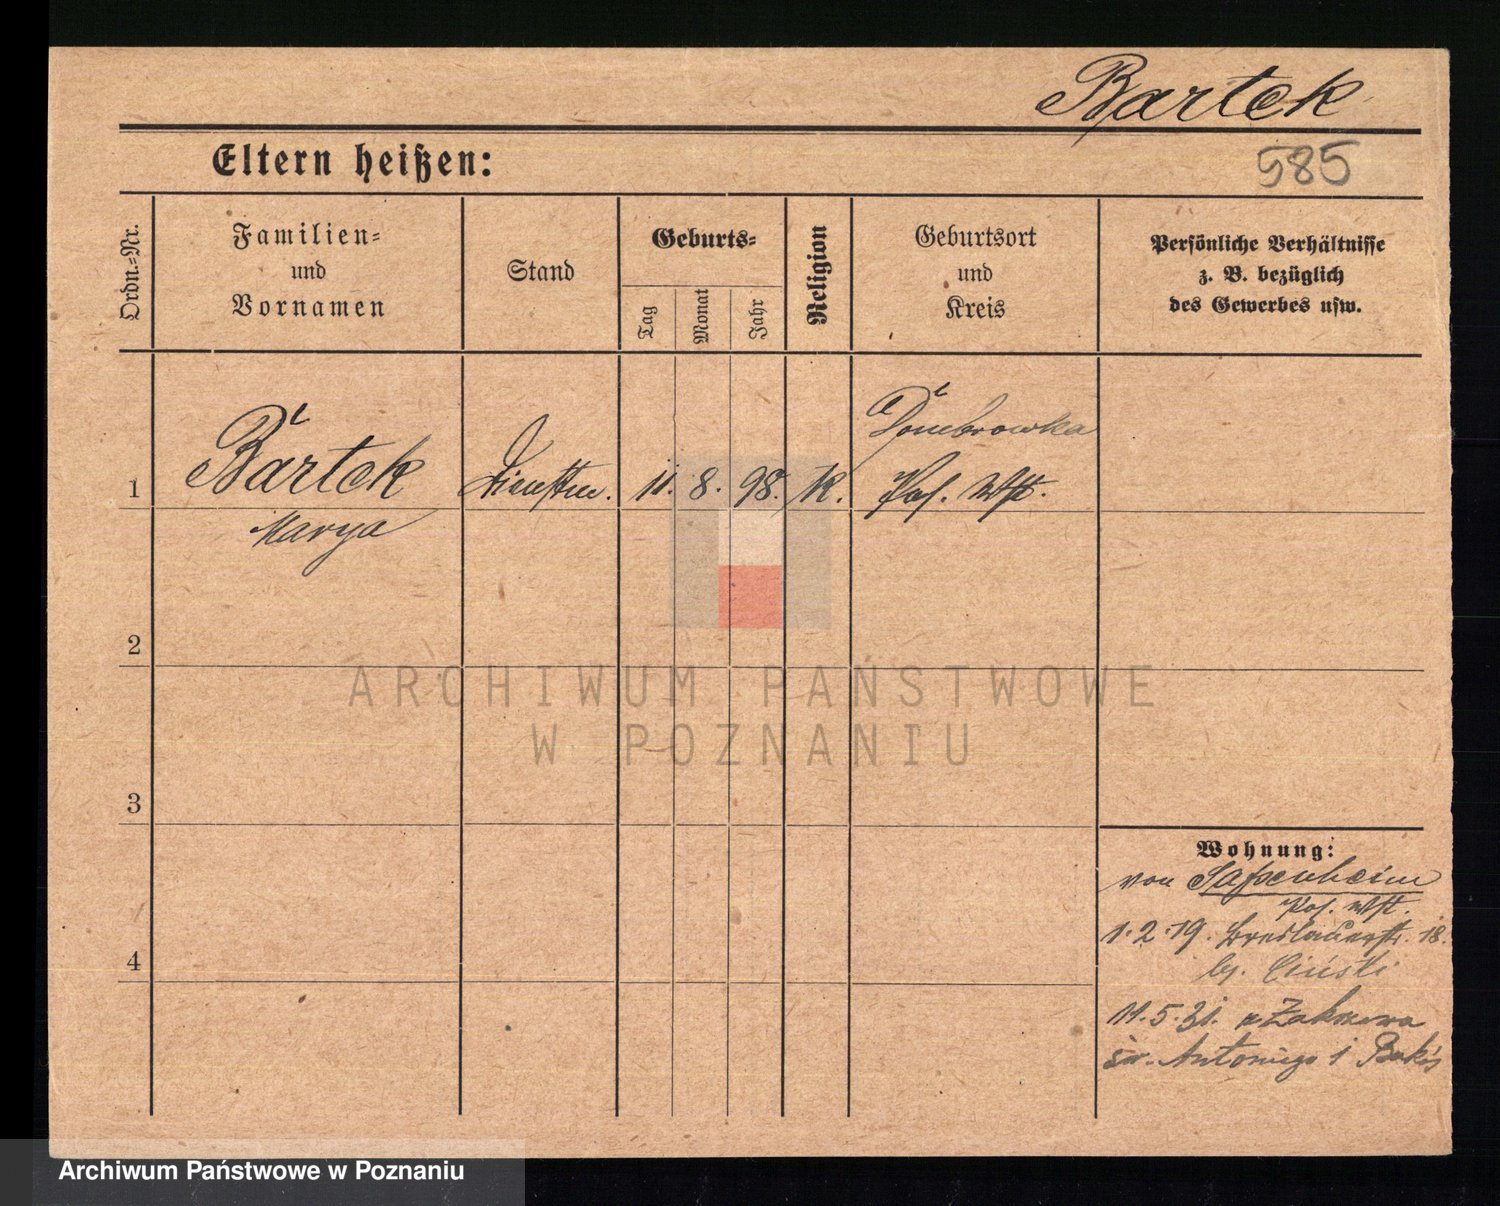 Bartek
585
Eltern heißen:
Ordn.-Nr.
Familien-
und
Vornamen
Stand
Geburts-
Tag
Monat
Jahr
Religion
Geburtsort
und
Kreis
Persönliche Verhältnisse
z. B. bezüglich
des Gewerbes usw.
1
Bartek
Marya
Dienstm.
11. 8. 98.
K.
Dombrowka
Pos. Wst.
2
3
4
Wohnung:
von Sassenheim
Pos. Wst.
1.2.19. Breslauerstr. 18.
bj.
11.5.31.
św. Antoniego 1
ARCHIWUM PAŃSTWOWE
W POZNANIU
Archiwum Państwowe w Poznaniu